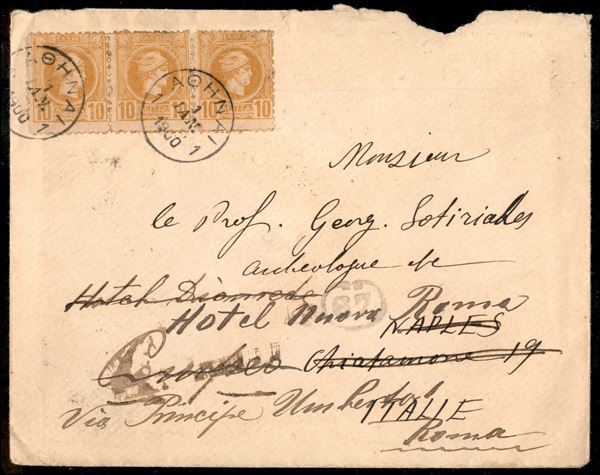 10 10 10
ΑΘΗΝΑΙ 1 ΙΑΝ. 1900 1
ΑΘΗΝΑΙ 1 ΙΑΝ. 1900 1
Monsieur
le Prof. Georg. Sotiriades
archeologue &c
Hotel Diomede
87
Hotel Nuova Roma
NAPLES
Chiatamone 19
Via Principe Umberto 1
ITALIE
Roma